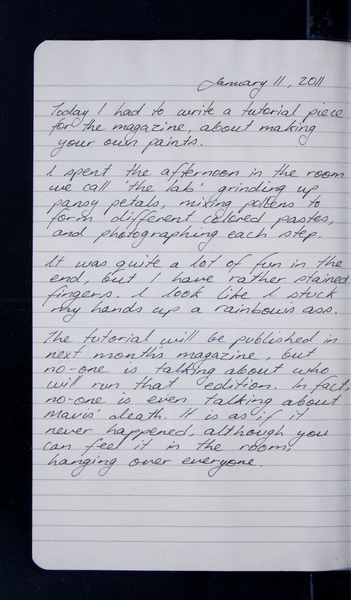 January 11, 2011
Today I had to write a tutorial piece
for the magazine, about making
your own paints.
I spent the afternoon in the room
we call 'the lab' grinding up
pansy petals, mixing pollens to
form different colored pastes,
and photographing each step.
It was quite a lot of fun in the
end, but I have rather stained
fingers. I look like I stuck
my hands up a rainbow's ass.
The tutorial will be published in
next month's magazine, but
no-one is talking about who
will run that edition. In fact,
no-one is even talking about
Mavis' death. It is as if it
never happened, although you
can feel it in the room,
hanging over everyone.